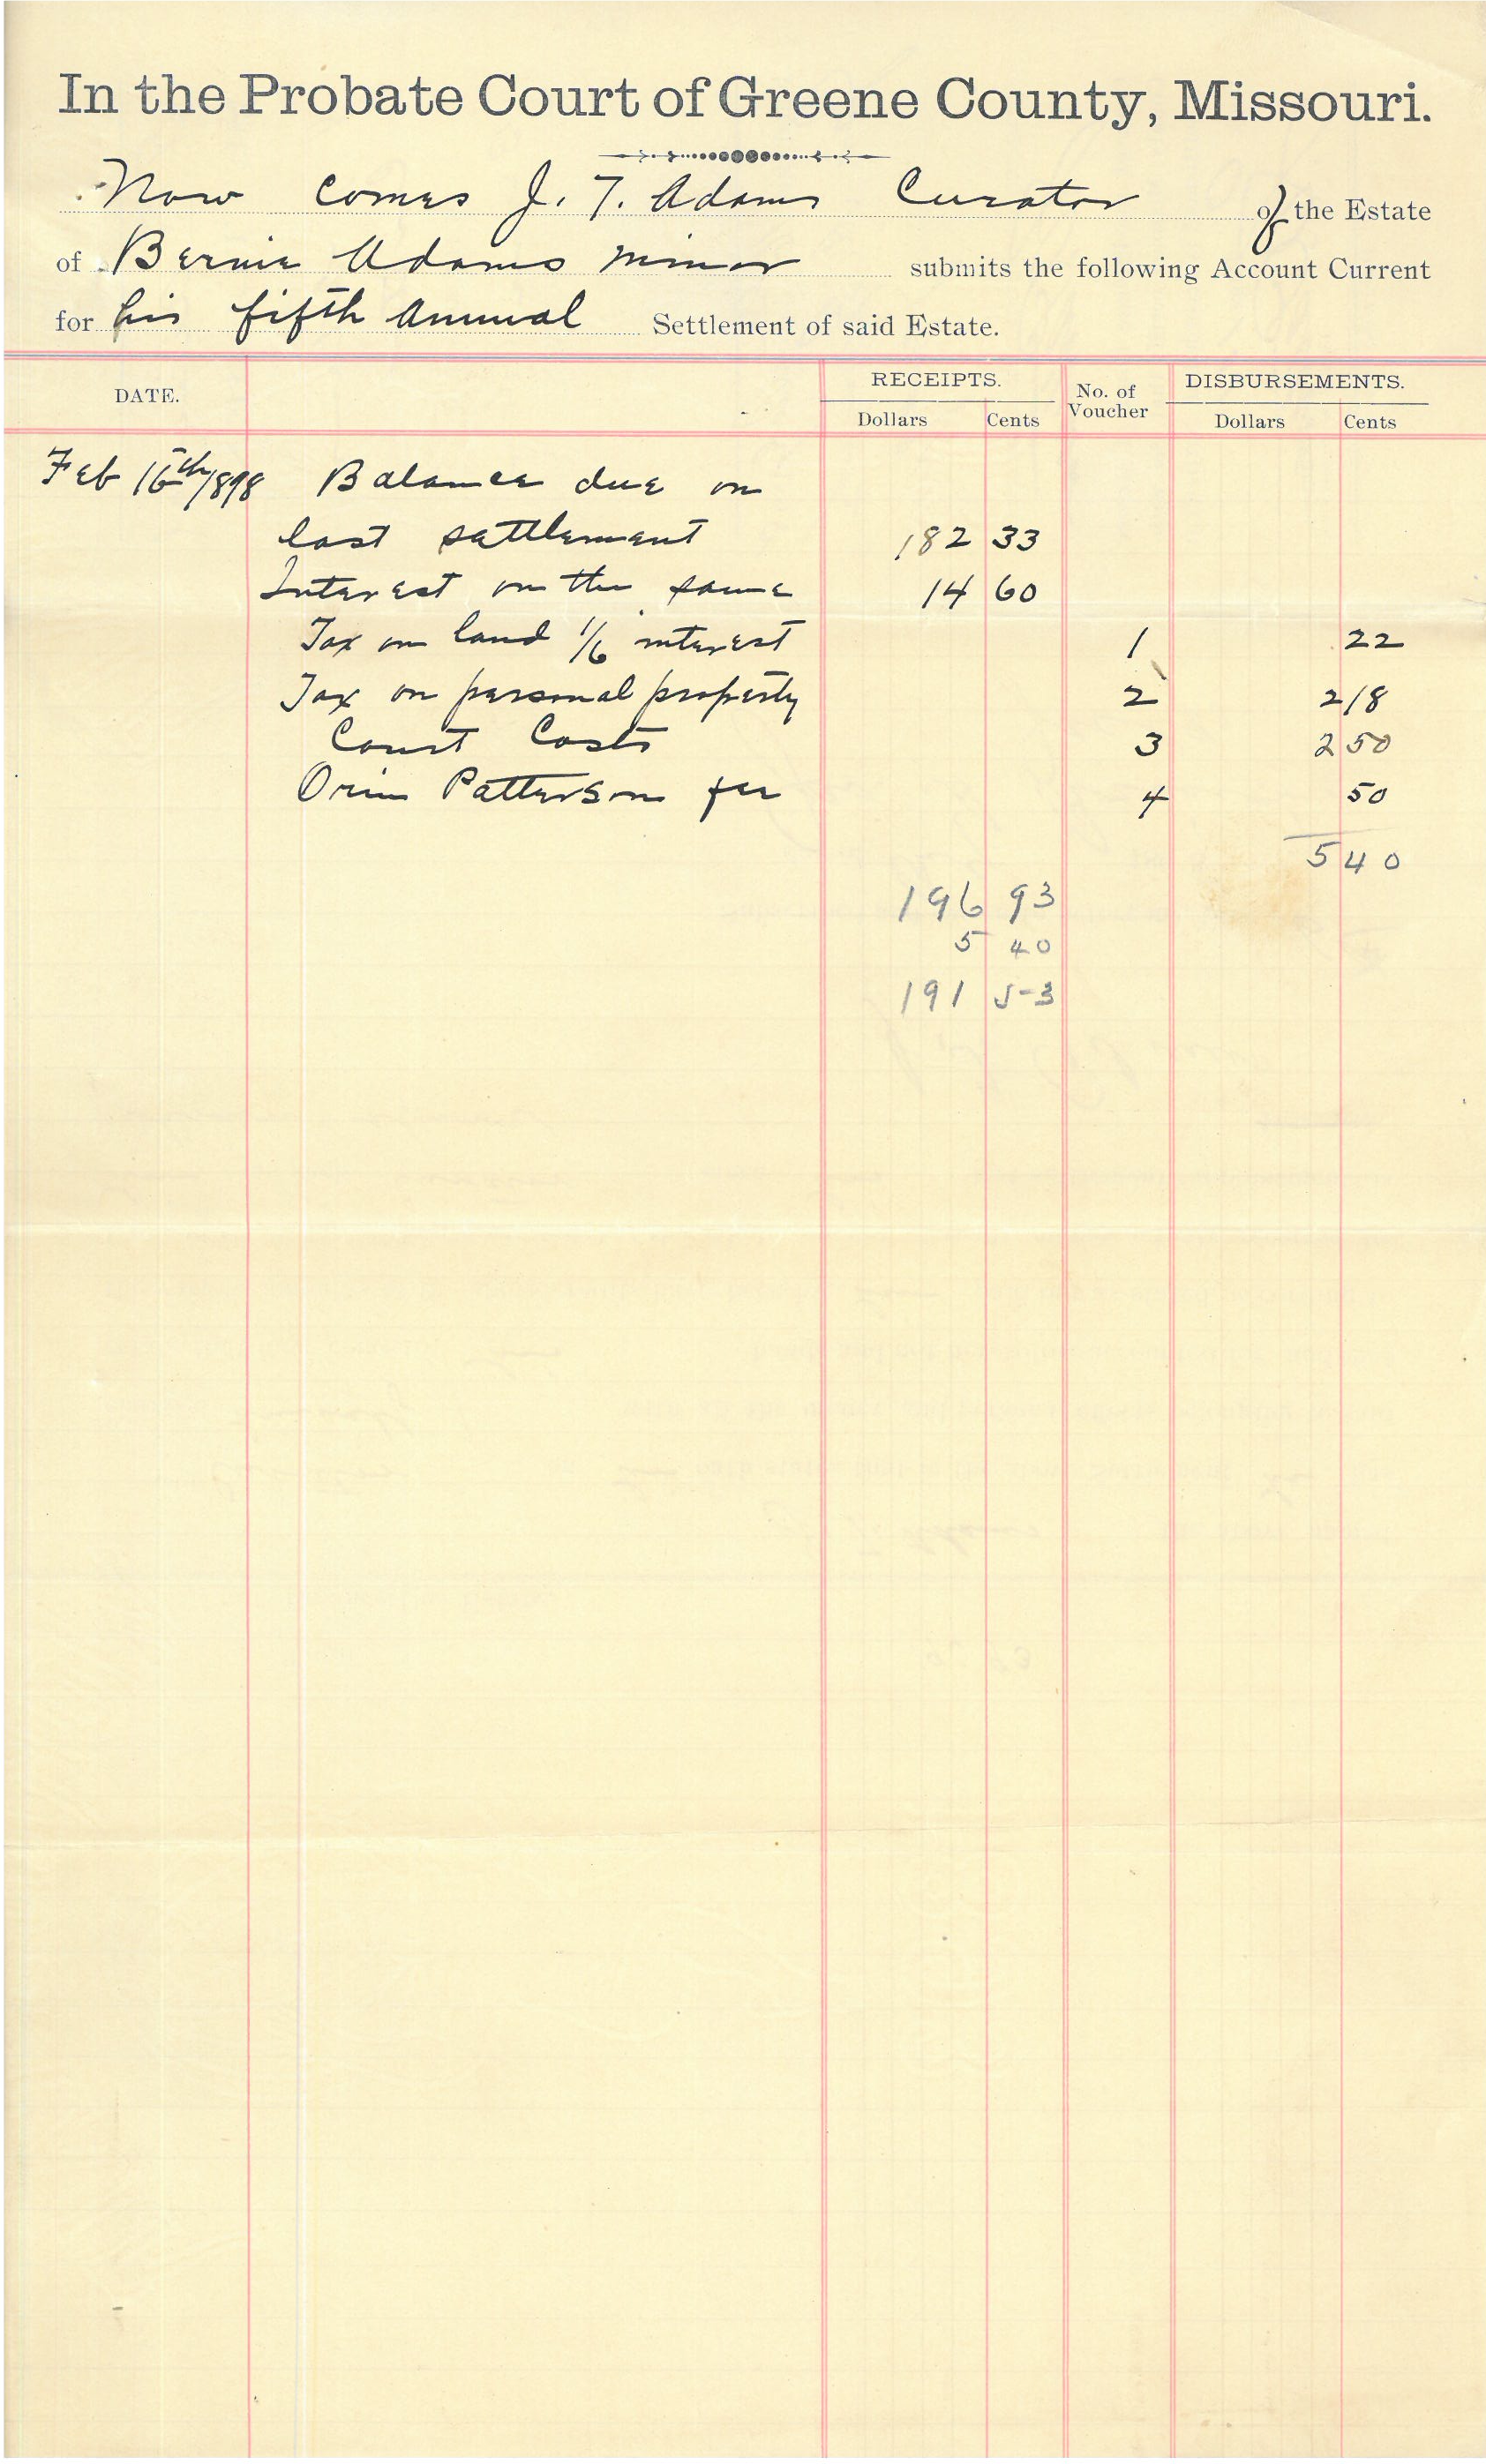 In the Probate Court of Greene County, Missouri.
Now comes J. T. Adams Curator of the Estate
of Bernie Adams minor submits the following Account Current
for his fifth Annual Settlement of said Estate.
DATE. RECEIPTS. No. of Voucher DISBURSEMENTS.
Dollars Cents Dollars Cents
Feb 16th/1898 Balance due on
last settlement 182 33
Interest on the same 14 60
Tax on land 1/6 interest 1 22
Tax on personal property 2 2 18
Court Costs 3 2 50
Orin Patterson fee 4 50
5 40
196 93
5 40
191 53